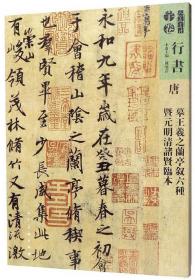 行書
唐
摹王羲之蘭亭叙六種
暨元明清諸賢臨本
永和九年歲在癸丑暮春之初會
于會稽山陰之蘭亭脩稧事
也羣賢畢至少長咸集此地
崇山
有峻領茂林脩竹又有清流激